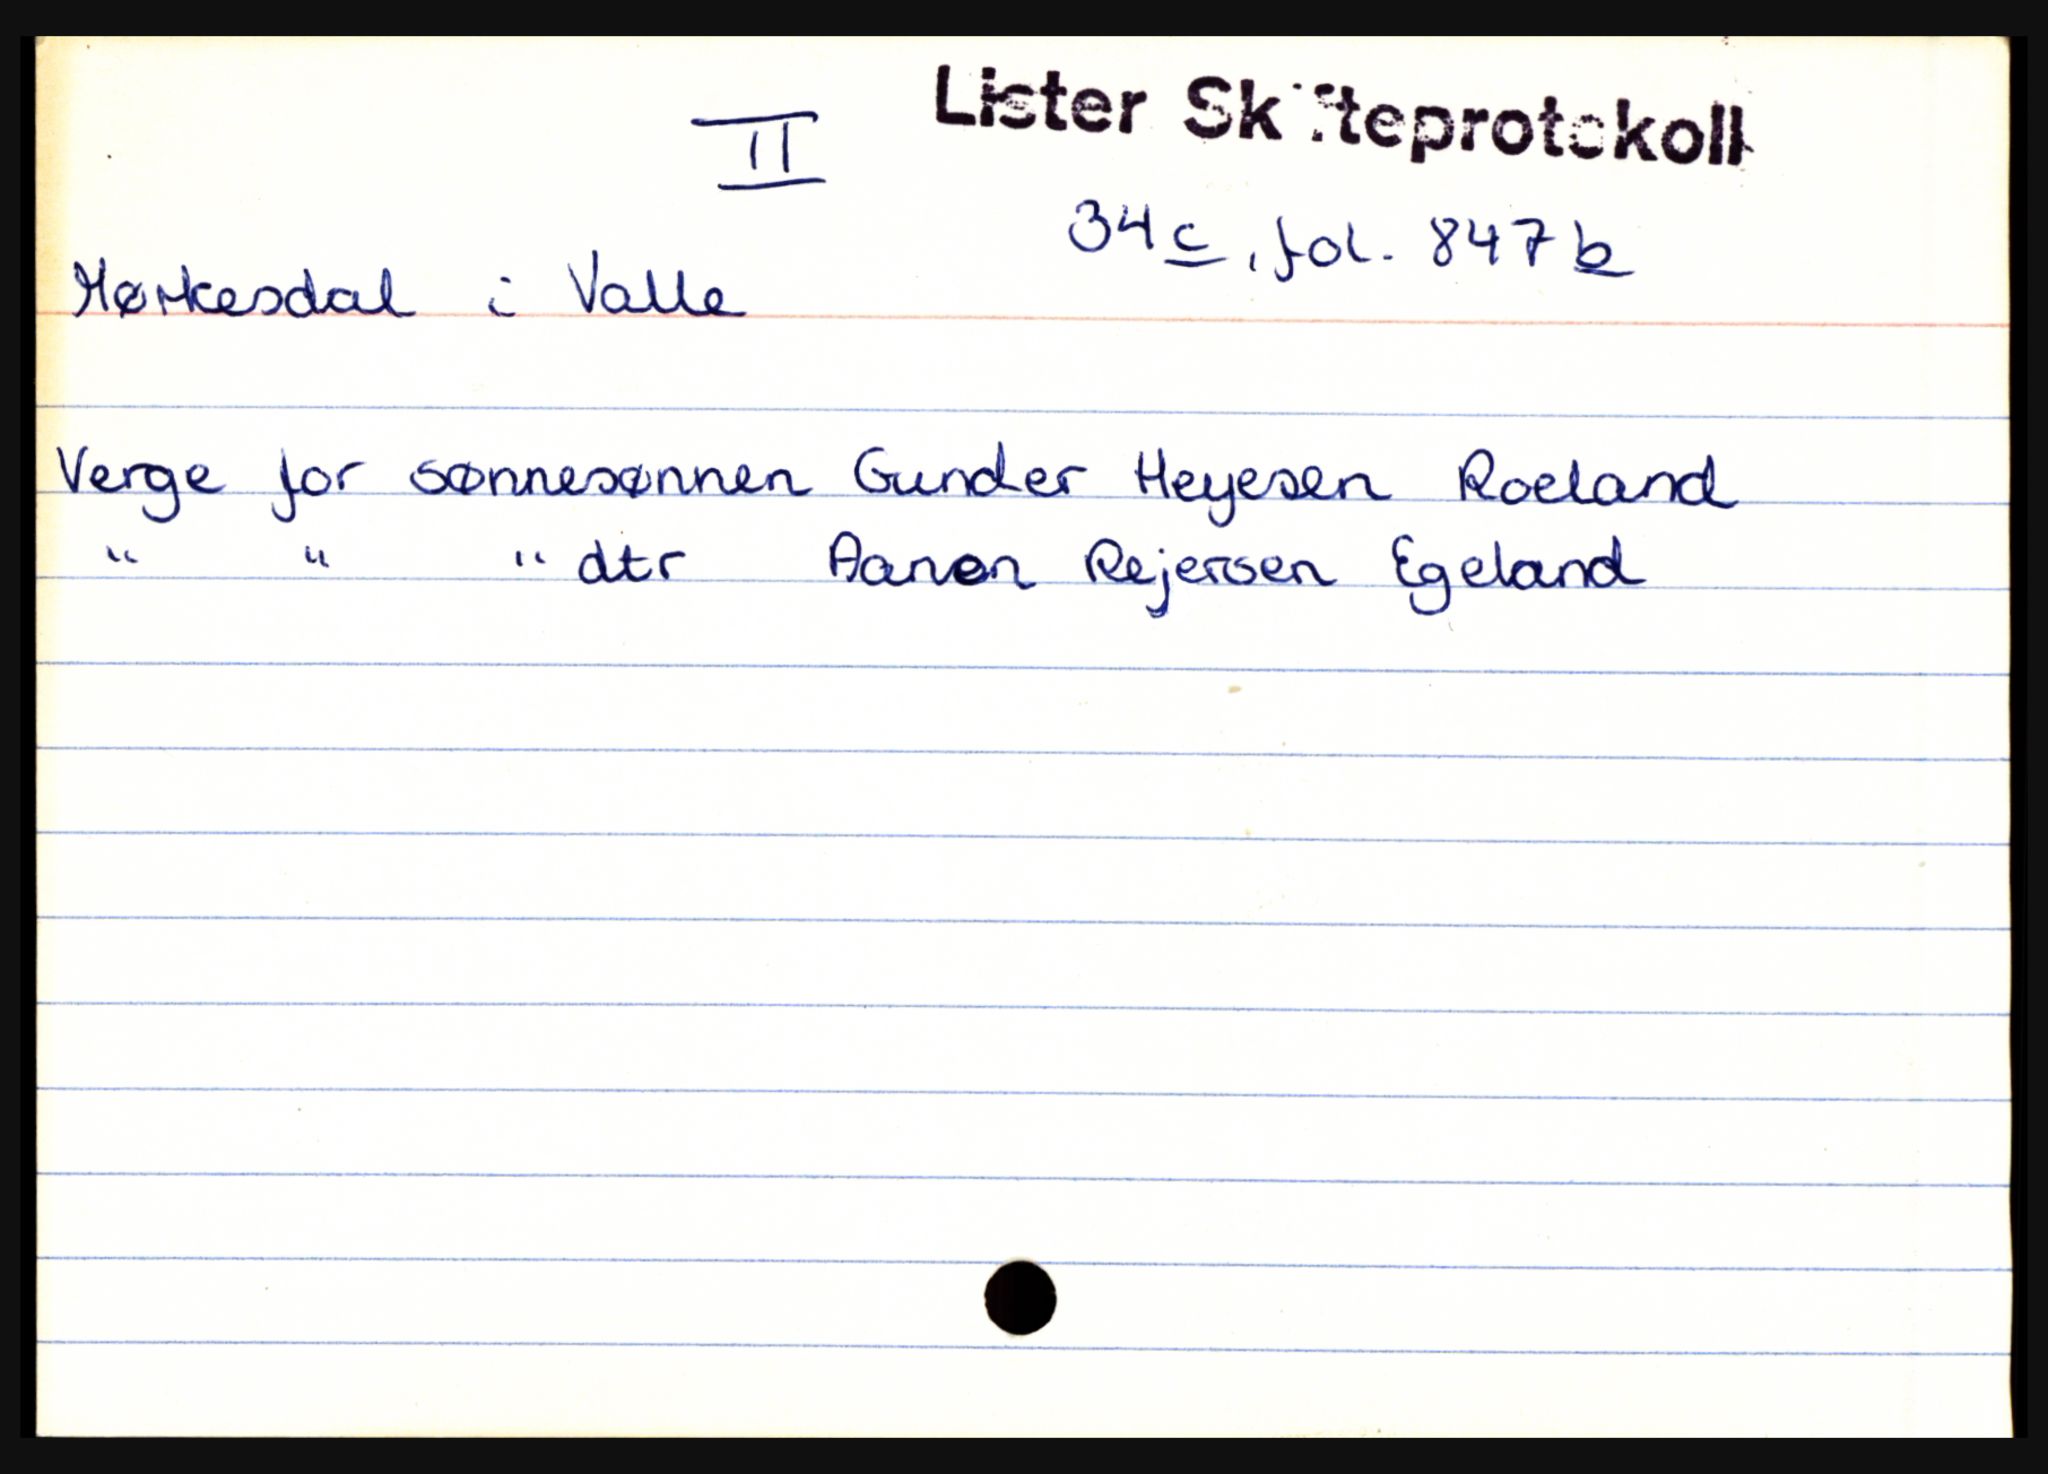 II
Lister Skifteprotokoll
34c, fol. 847b
Mørkesdal i Valle
Verge for sønnesønnen Gunder Heyesen Roeland
" " " dtr Aanen Rejersen Egeland